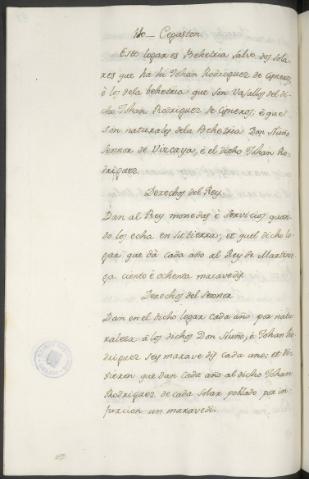 Este logar es Behetria salvo dos sola
res que ha hi Johan Rodriguez de Cisneros,
è los dela behetria que son Vasallos del di
cho Johan Rodriguez de Cisneros, è que
son naturales dela Behetria Don Nuño
Sennor de Vizcaya, è el dicho Johan Ro
driguez.
Derechos del Rey.
Dan al Rey monedas è servicios quan
do los echa en su tierra, et quel dicho lo
gar, que dà cada año al Rey de Martinie
ga ciento è ochenta maravedis.
Derechos del Sennor
Dan en el dicho logar cada año por natu
raleza à los dichos Don Nuño, è Johan Ro
driguez seys maravedis cada uno; et di
xieren que dan cada año al dicho Johan
Rodriguez de cada solar poblado por in
furcion un maravedi.